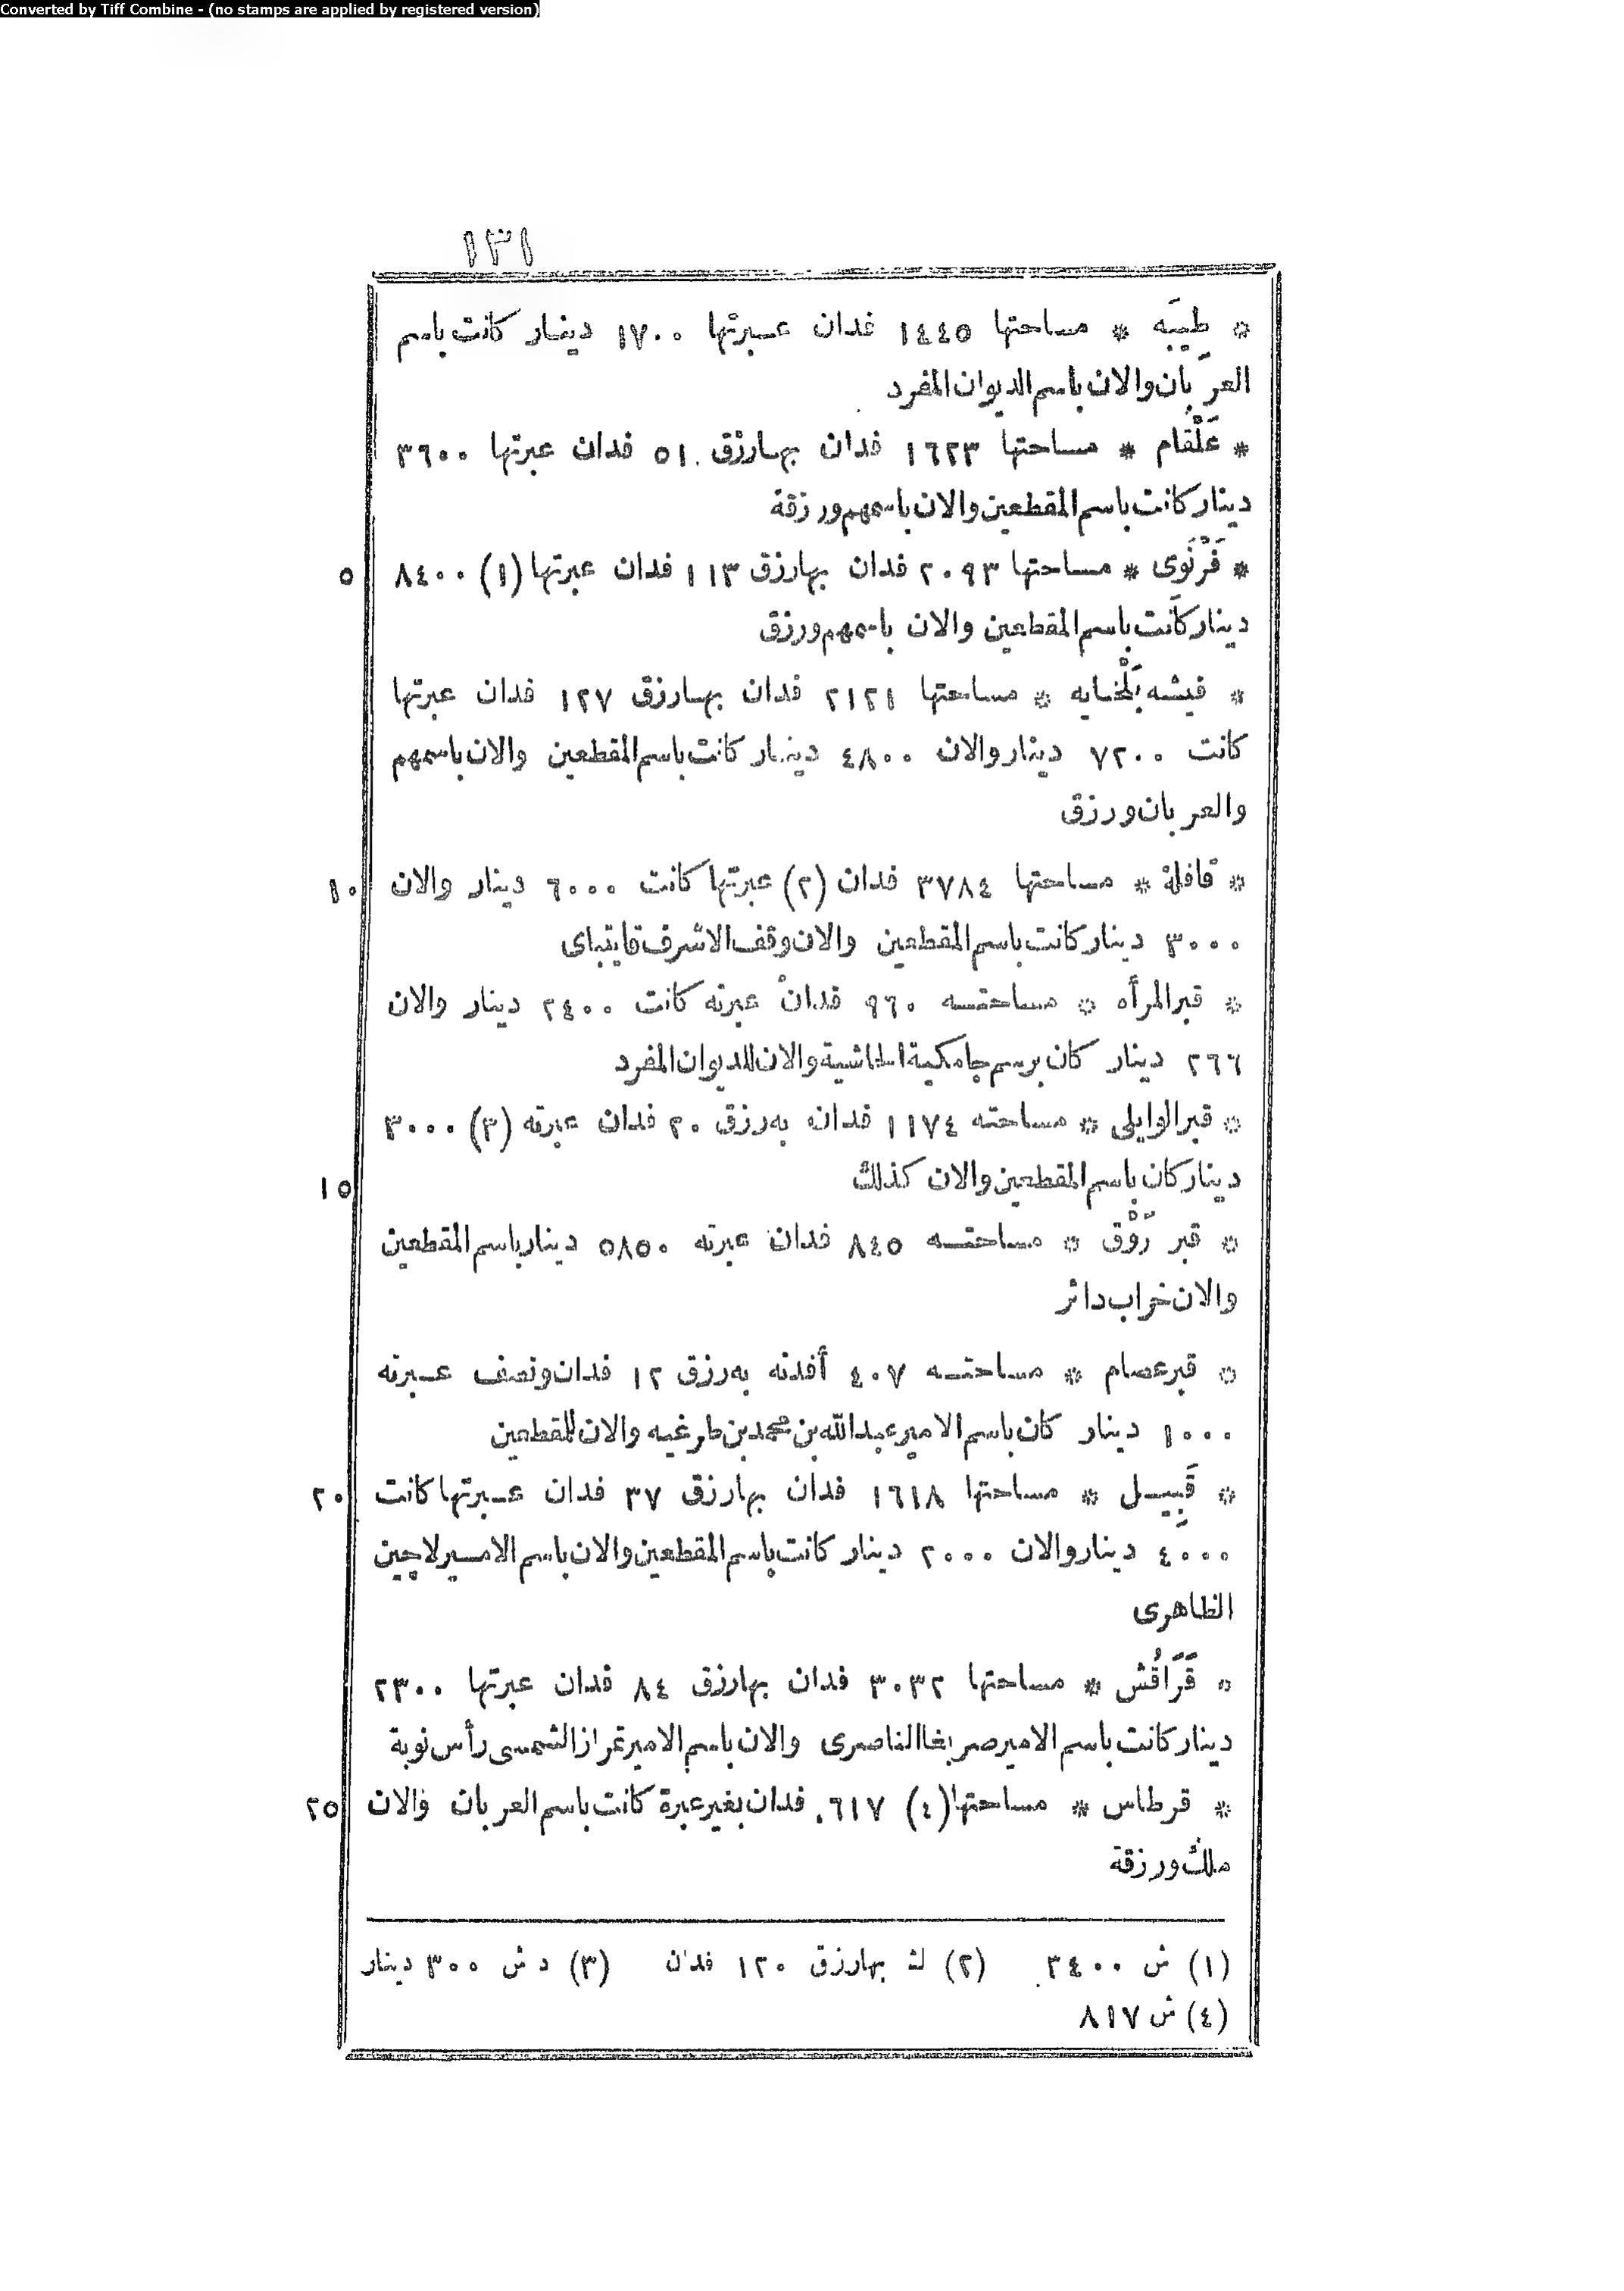 Converted by Tiff Combine - (no stamps are applied by registered version)
١٣١
* طِيبَه * مساحتها ١٤٤٥ فدان عبرتها ١٧٠٠ دينار كانت باسم
العربان والان باسم الديوان المفرد
* عَلْقَام * مساحتها ١٦٢٣ فدان بها رزق ٥١ فدان عبرتها ٣٦٠٠
دينار كانت باسم المقطعين والان باسمهم ورزقة
٥ * فَرْنَوَى * مساحتها ٢٠٩٣ فدان بها رزق ١١٣ فدان عبرتها (١) ٨٤٠٠
دينار كانت باسم المقطعين والان باسمهم ورزق
* فيشه بَلْخايه * مساحتها ٢١٢١ فدان بها رزق ١٢٧ فدان عبرتها
كانت ٧٢٠٠ دينار والان ٤٨٠٠ دينار كانت باسم المقطعين والان باسمهم
والعربان ورزق
١٠ * قافلة * مساحتها ٣٧٨٤ فدان (٢) عبرتها كانت ٦٠٠٠ دينار والان
٣٠٠٠ دينار كانت باسم المقطعين والان وقف الاشرف قايتباى
* قبر المرأه * مساحته ٩٦٠ فدان عبرته كانت ٢٤٠٠ دينار والان
٢٦٦ دينار كان برسم جامكية الحاشية والان للديوان المفرد
* قبر الوايلى * مساحته ١١٧٤ فدان به رزق ٢٠ فدان عبرته (٣) ٣٠٠٠
١٥ دينار كان باسم المقطعين والان كذلك
* قبر رَوْق * مساحته ٨٤٥ فدان عبرته ٥٨٥٠ دينار باسم المقطعين
والان خراب داثر
* قبر عصام * مساحته ٤٠٧ أفدنه به رزق ١٢ فدان ونصف عبرته
١٠٠٠ دينار كان باسم الامير عبد الله بن محمد بن طرغيه والان للمقطعين
٢٠ * قَبِيل * مساحتها ١٦١٨ فدان بها رزق ٣٧ فدان عبرتها كانت
٤٠٠٠ دينار والان ٢٠٠٠ دينار كانت باسم المقطعين والان باسم الامير لاجين
الظاهرى
* قَرَاقُش * مساحتها ٣٠٣٢ فدان بها رزق ٨٤ فدان عبرتها ٢٣٠٠
دينار كانت باسم الامير صربغا الناصرى والان باسم الامير تمراز الشمسى رأس نوبة
٢٥ * قرطاس * مساحتها (٤) ٦١٧ فدان بغير عبرة كانت باسم العربان والان
ملك ورزقة
(١) ش ٣٤٠٠ (٢) ك بها رزق ١٢٠ فدان (٣) د ش ٣٠٠ دينار
(٤) ش ٨١٧